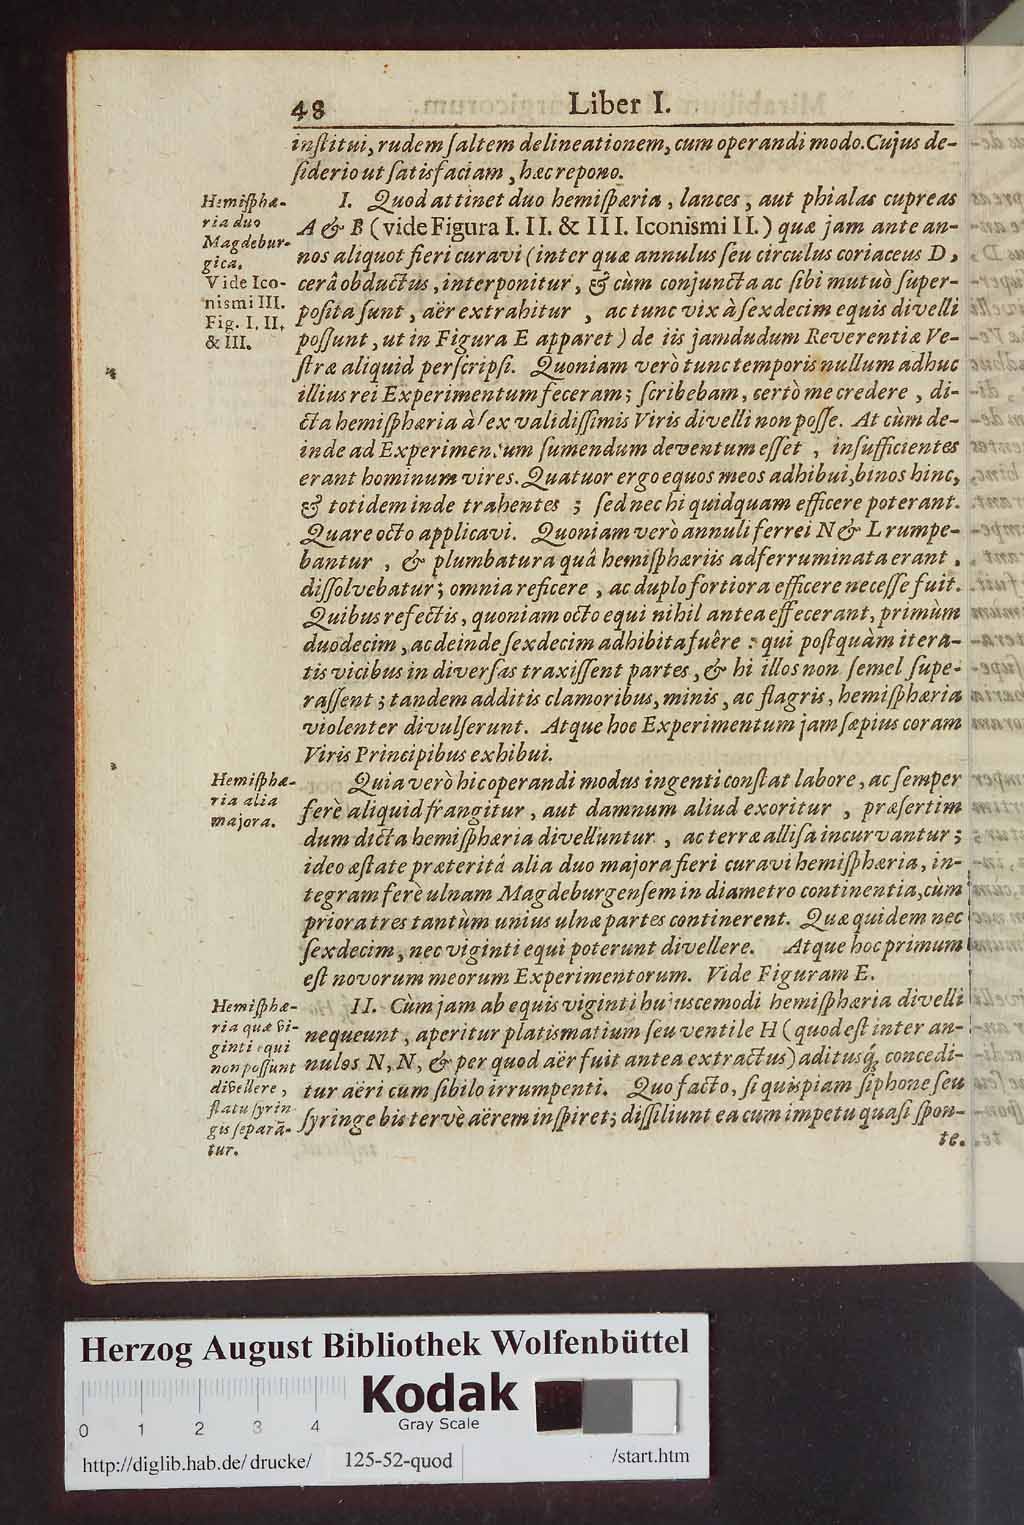 48 Liber I.
inſtitui, rudem ſaltem delineationem, cum operandi modo. Cujus de-
ſiderio ut ſatisfaciam, hæc repono.
Hemiſphæ-
ria duo
Magdebur-
gica.
Vide Ico-
nismi III.
Fig. I, II,
& III.
I. Quod attinet duo hemiſpæria, lances, aut phialas cupreas
A & B (vide Figura I. II. & III. Iconismi II.) quæ jam ante an-
nos aliquot fieri curavi (inter quæ annulus ſeu circulus coriaceus D,
cerâ obductus, interponitur, & cùm conjuncta ac ſibi mutuò ſuper-
poſita ſunt, aër extrahitur, ac tunc vix à ſexdecim equis divelli
poſſunt, ut in Figura E apparet) de iis jamdudum Reverentiæ Ve-
ſtræ aliquid perſcripſi. Quoniam verò tunc temporis nullum adhuc
illius rei Experimentum feceram; ſcribebam, certò me credere, di-
cta hemiſphæria à ſex validiſſimis Viris divelli non poſſe. At cùm de-
inde ad Experimentum ſumendum deventum eſſet, inſufficientes
erant hominum vires. Quatuor ergo equos meos adhibui, binos hinc,
& totidem inde trahentes; ſed nec hi quidquam efficere poterant.
Quare octo applicavi. Quoniam verò annuli ferrei N & L rumpe-
bantur, & plumbatura quâ hemiſphæriis adferruminata erant,
diſſolvebatur; omnia reficere, ac duplo fortiora efficere neceſſe fuit.
Quibus refectis, quoniam octo equi nihil antea effecerant, primùm
duodecim, ac deinde ſexdecim adhibita fuêre: qui poſtquàm itera-
tis vicibus in diverſas traxiſſent partes, & hi illos non ſemel ſupe-
raſſent; tandem additis clamoribus, minis, ac flagris, hemiſphæria
violenter divulſerunt. Atque hoc Experimentum jam ſæpius coram
Viris Principibus exhibui.
Hemiſphæ-
ria alia
majora.
Quia verò hic operandi modus ingenti conſtat labore, ac ſemper
ferè aliquid frangitur, aut damnum aliud exoritur, præſertim
dum dicta hemiſphæria divelluntur, ac terræ alliſa incurvantur;
ideo æſtate præteritâ alia duo majora fieri curavi hemiſphæria, in-
tegram ferè ulnam Magdeburgenſem in diametro continentia, cùm
priora tres tantùm unius ulnæ partes continerent. Quæ quidem nec
ſexdecim, nec viginti equi poterunt divellere. Atque hoc primum
eſt novorum meorum Experimentorum. Vide Figuram E.
Hemiſphæ-
ria quæ vi-
ginti equi
non poſſunt
divellere,
flatu ſyrin-
gis ſeparā-
tur.
II. Cùm jam ab equis viginti hujuscemodi hemiſphæria divelli
nequeunt, aperitur platismatium ſeu ventile H (quod eſt inter an-
nulos N, N, & per quod aër fuit antea extractus) aditusq́; concedi-
tur aëri cum ſibilo irrumpenti. Quo facto, ſi quiſpiam ſiphone ſeu
ſyringe bis tervè aërem inſpiret; diſſiliunt ea cum impetu quaſi ſpon-
te.
Herzog August Bibliothek Wolfenbüttel
Kodak
Gray Scale
0 1 2 3 4
http://diglib.hab.de/drucke/ 125-52-quod /start.htm